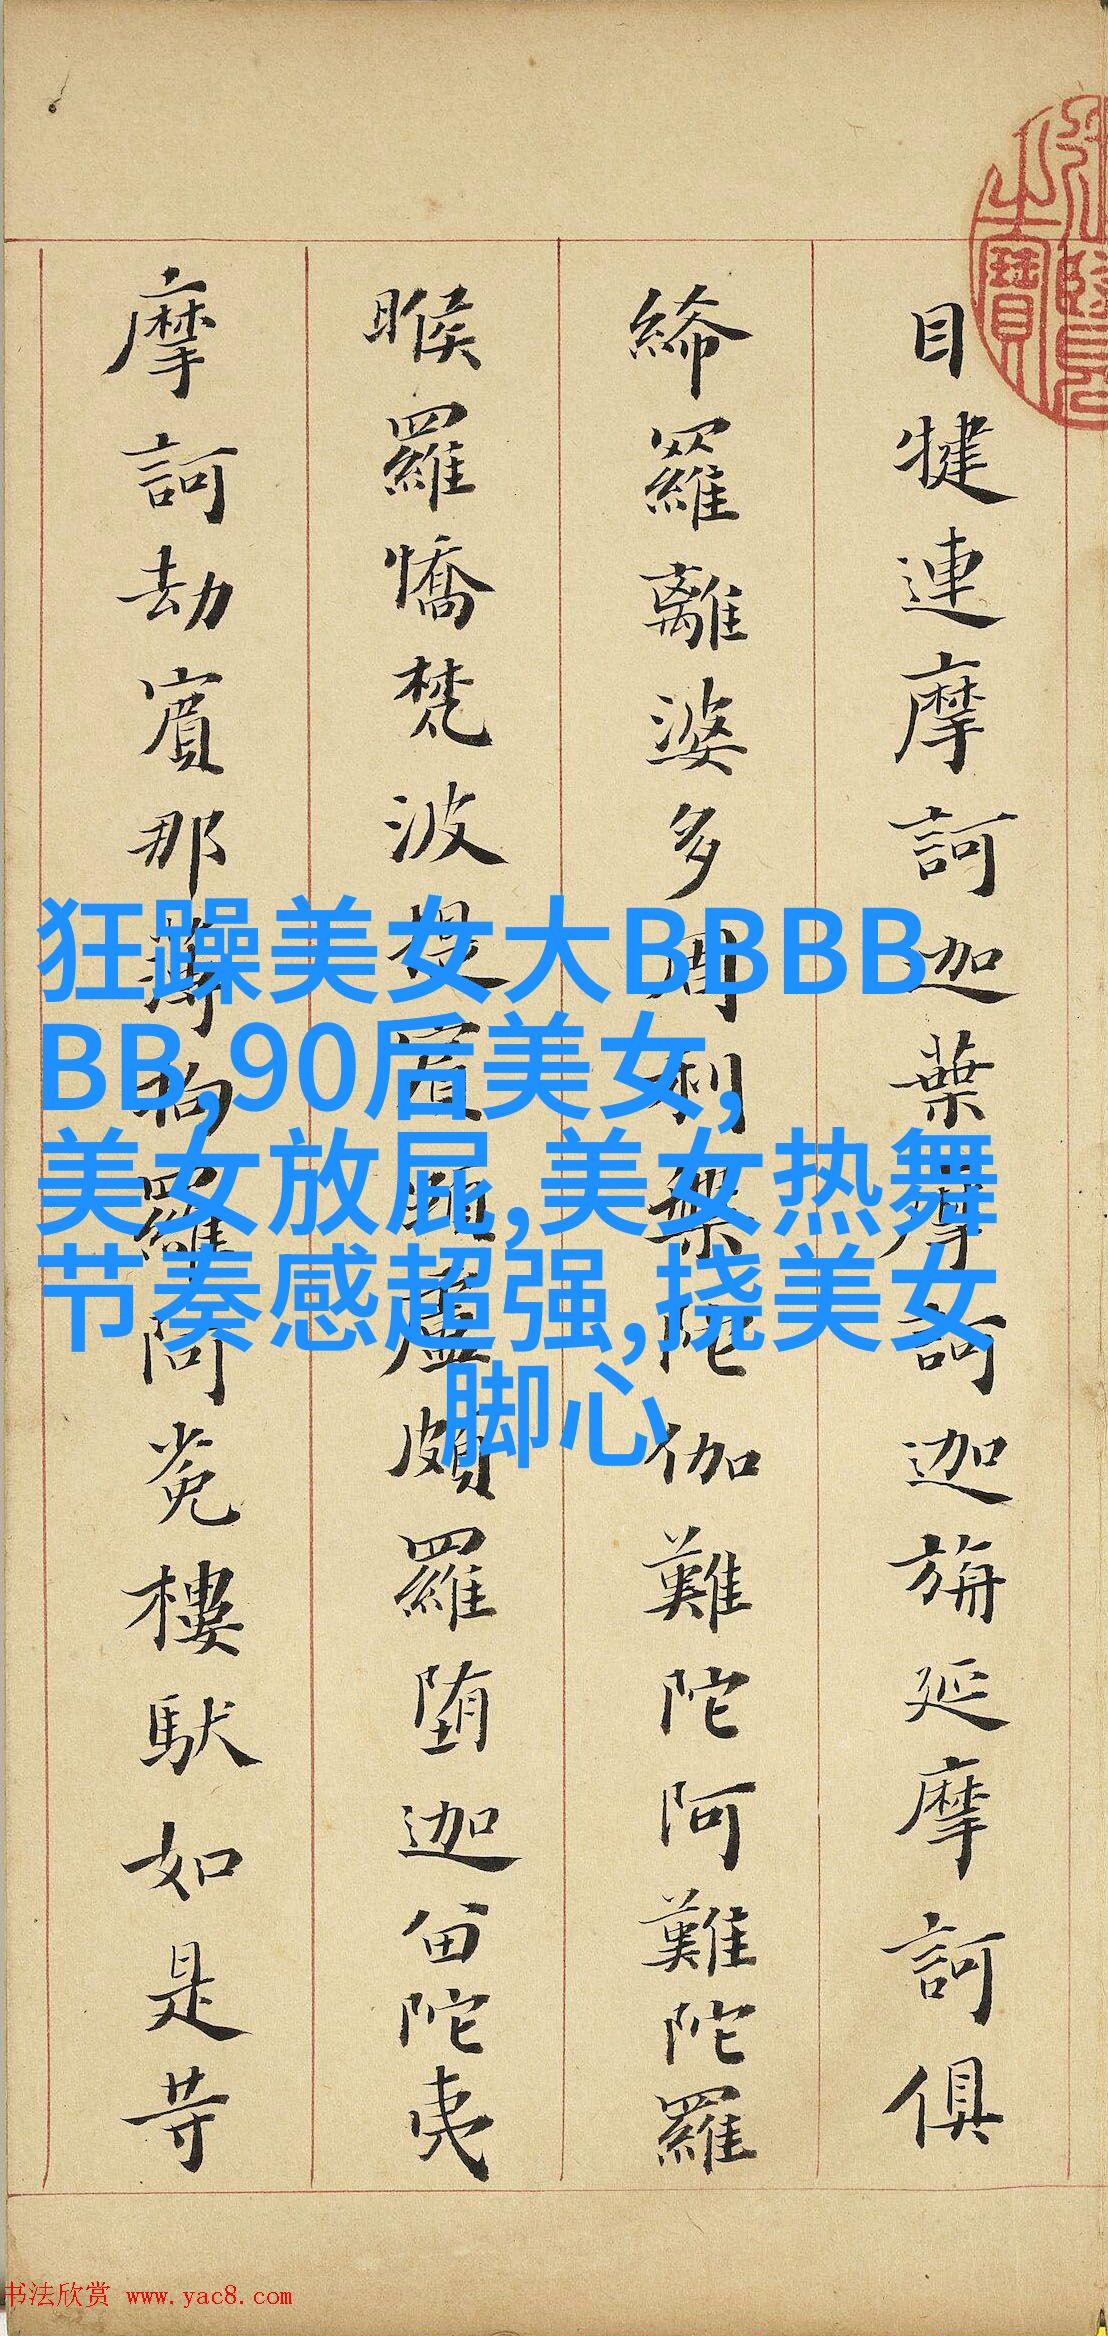 目犍連摩訶迦葉摩訶迦旃延摩訶俱
絺羅離婆多周利槃陀伽難陀阿難陀羅
睺羅憍梵波提賓頭盧頗羅堕迦留陀夷
摩訶劫賓那薄拘羅阿㝹樓馱如是等
狂躁美女大BBBB
BB,90后美女,
美女放屁,美女热舞
节奏感超强,挠美女
脚心
书法欣赏 www.yac8.com